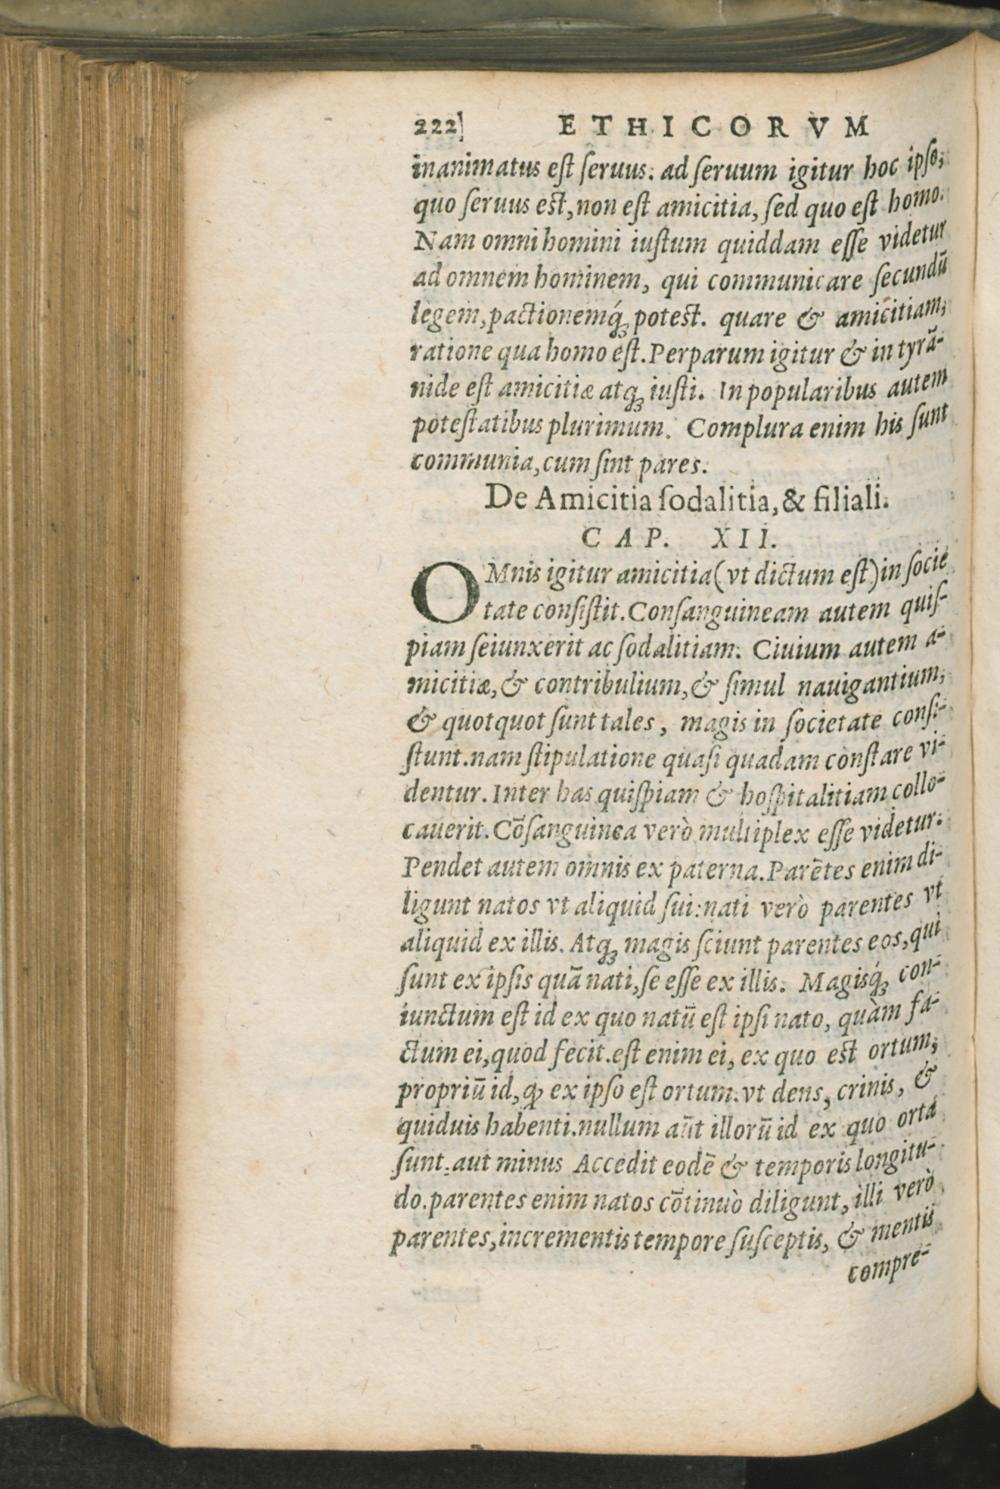 222] ETHICORVM
inanimatus est seruus. ad seruum igitur hoc ipso,
quo seruus est, non est amicitia, sed quo est homo.
Nam omni homini iustum quiddam esse videtur
ad omnem hominem, qui communicare secundū
legem, pactionemq́ꝫ potest. quare & amicitiam,
ratione qua homo est. Perparum igitur & in tyrā-
nide est amicitiæ atqꝫ iusti. In popularibus autem
potestatibus plurimum. Complura enim his sunt
communia, cum sint pares.
De Amicitia sodalitia, & filiali.
CAP. XII.
OMnis igitur amicitia (vt dictum est) in socie
tate consistit. Consanguineam autem quis-
piam seiunxerit ac sodalitiam. Ciuium autem a-
micitiæ, & contribulium, & simul nauigantium,
& quotquot sunt tales, magis in societate consi-
stunt. nam stipulatione quasi quadam constare vi-
dentur. Inter has quispiam & hospitalitiam collo-
cauerit. Cōsanguinea verò multiplex esse videtur.
Pendet autem omnis ex paterna. Parētes enim di-
ligunt natos vt aliquid sui: nati verò parentes vt
aliquid ex illis. Atqꝫ magis sciunt parentes eos, qui
sunt ex ipsis quā nati, se esse ex illis. Magisq́ꝫ con-
iunctum est id ex quo natū est ipsi nato, quàm fa-
ctum ei, quod fecit. est enim ei, ex quo est ortum,
propriū id, qꝫ ex ipso est ortum. vt dens, crinis, &
quiduis habenti. nullum aūt illorū id ex quo orta
sunt. aut minus Accedit eodē & temporis longitu-
do. parentes enim natos cōtinuò diligunt, illi verò
parentes, incrementis tempore susceptis, & mentis
compre-